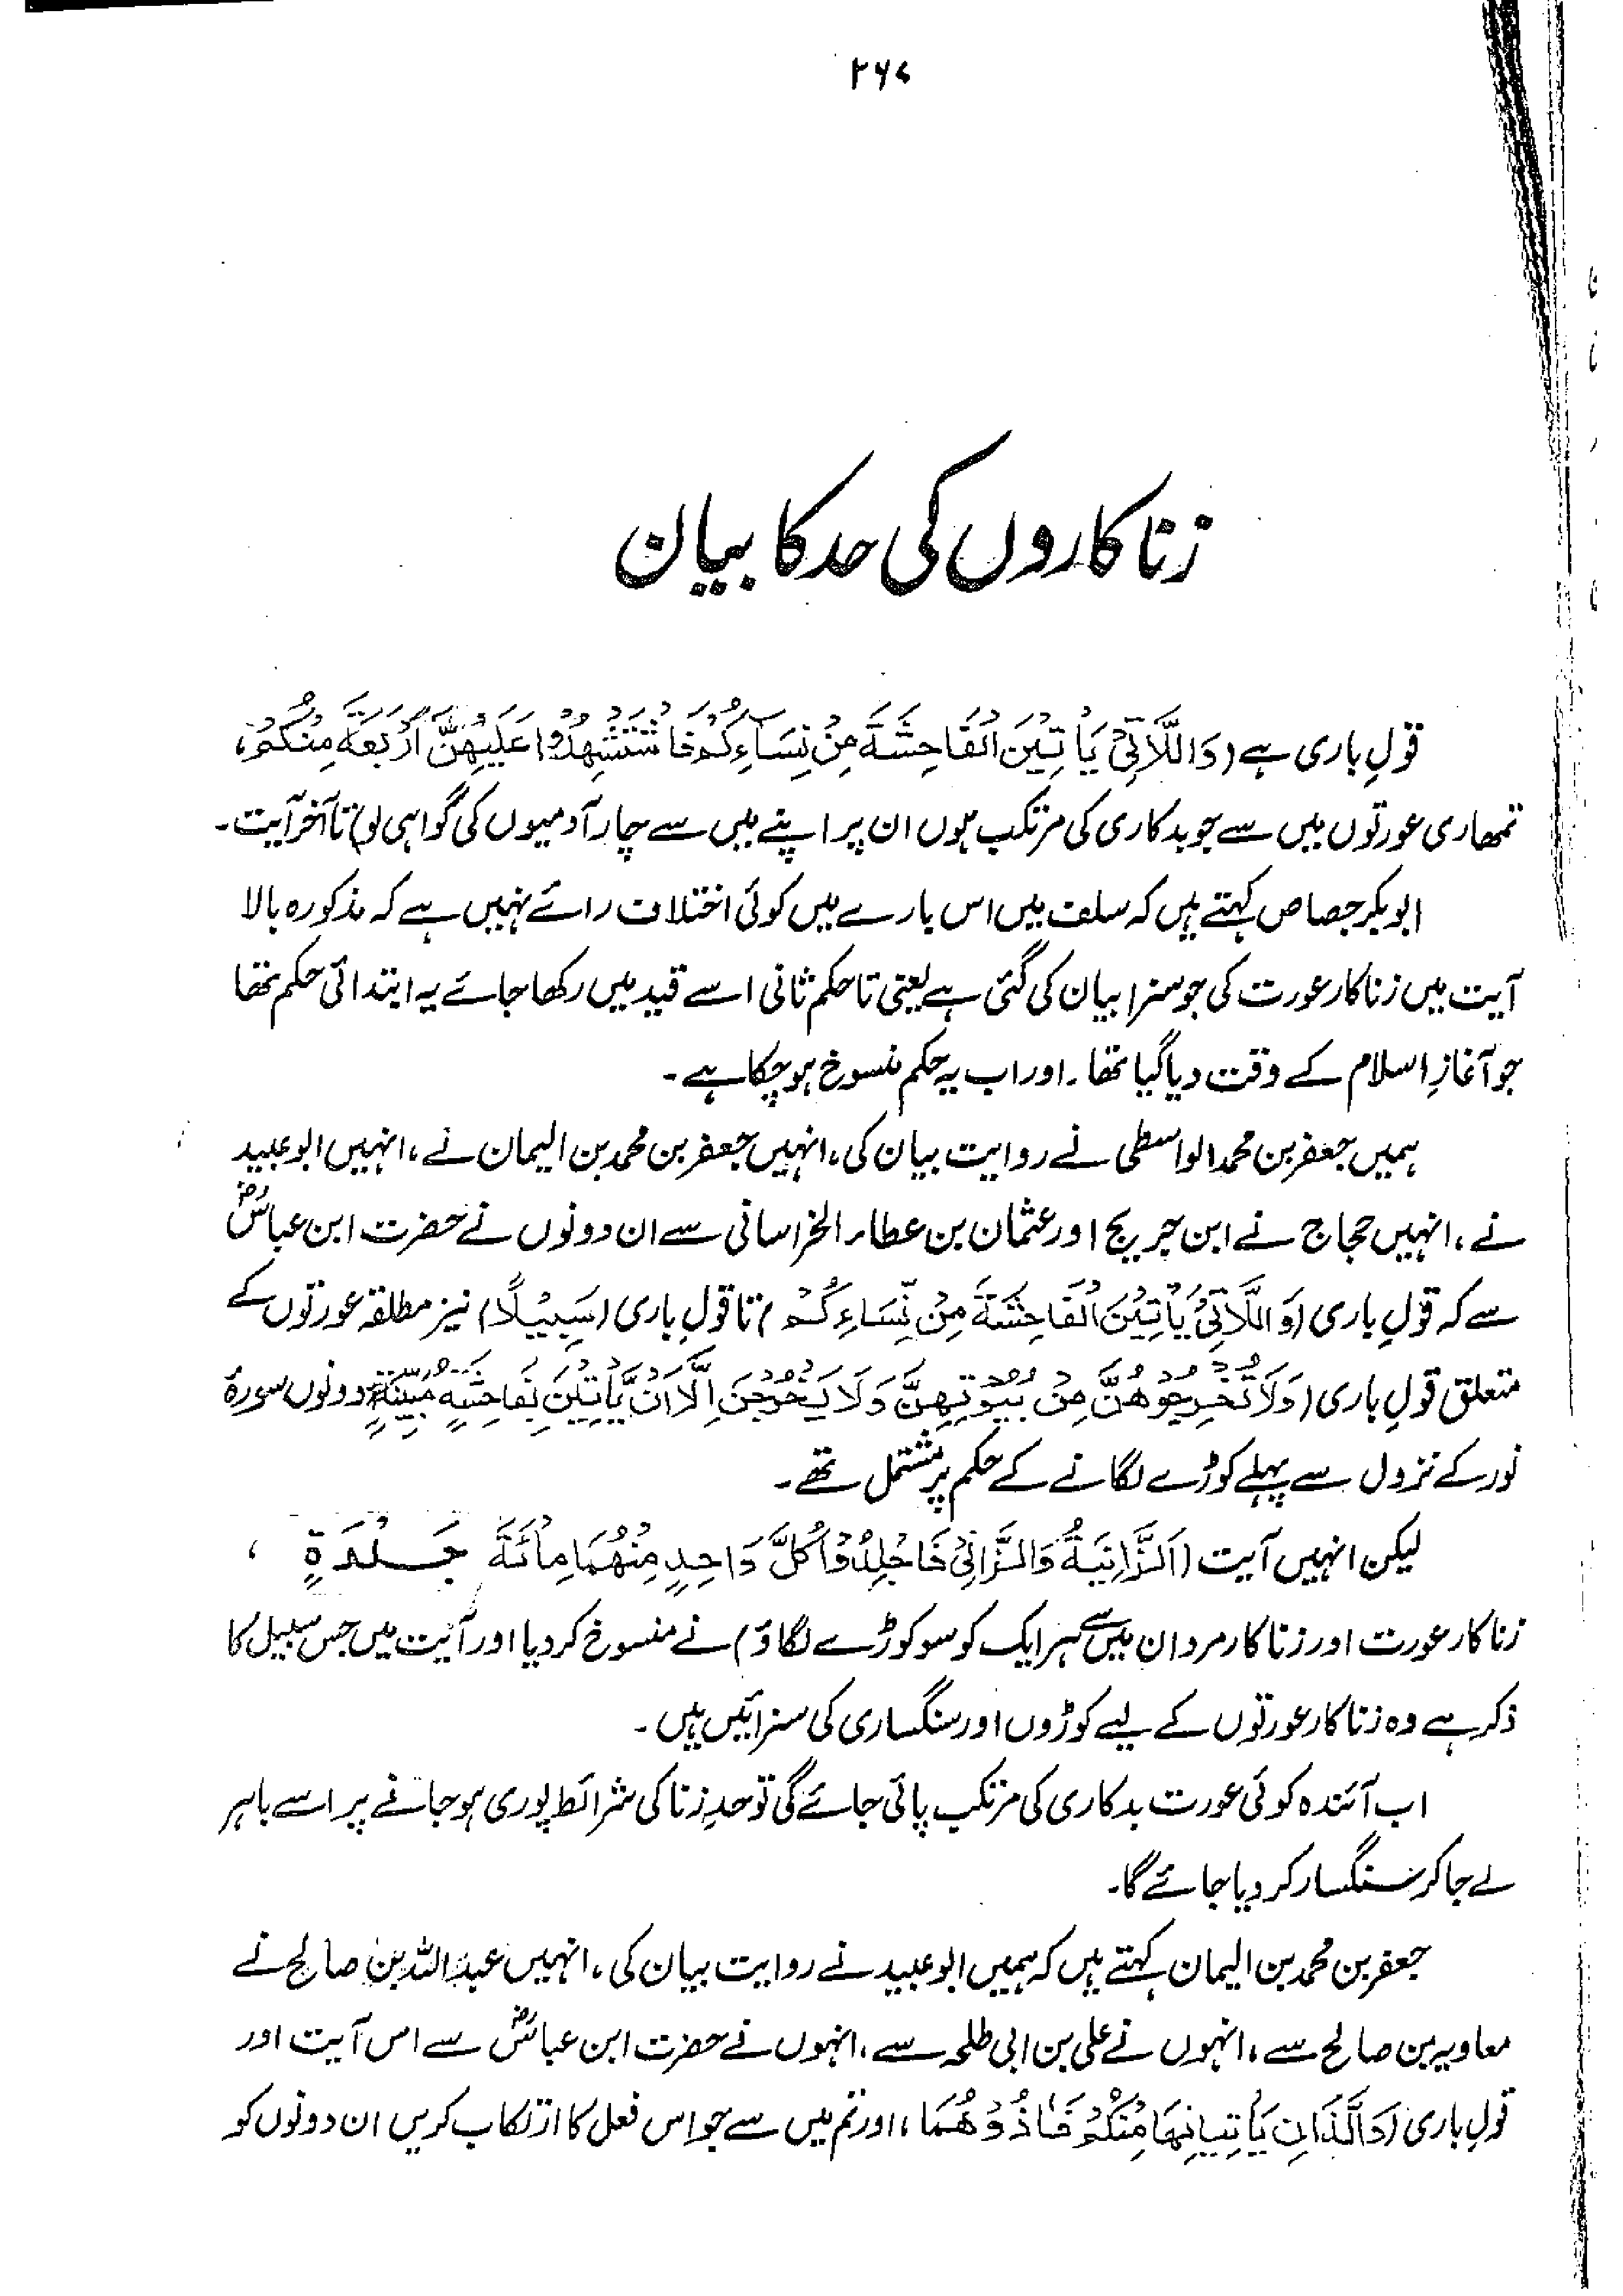 ۲۶۷
زنا کاروں کی حد کا بیان
قولِ باری ہے (وَاللَّاتِیْ یَاْتِیْنَ الْفَاحِشَةَ مِنْ نِسَآءِکُمْ فَاسْتَشْهِدُوْا عَلَیْهِنَّ اَرْبَعَةً مِنْکُمْ،
تمھاری عورتوں میں سے جو بدکاری کی مرتکب ہوں ان پر اپنے میں سے چار آدمیوں کی گواہی لو) تا آخر آیت۔
ابوبکر جصاص کہتے ہیں کہ سلف میں اس بارے میں کوئی اختلاف رائے نہیں ہے کہ مذکورہ بالا
آیت میں زنا کار عورت کی جو سزا بیان کی گئی ہے یعنی تا حکم ثانی اسے قید میں رکھا جائے یہ ابتدائی حکم تھا
جو آغازِ اسلام کے وقت دیا گیا تھا۔ اور اب یہ حکم منسوخ ہو چکا ہے۔
ہمیں جعفر بن محمد الواسطی نے روایت بیان کی، انہیں جعفر بن محمد بن الیمان نے، انہیں ابو عبید
نے، انہیں حجاج نے ابن جریج اور عثمان بن عطاء الخراسانی سے ان دونوں نے حضرت ابن عباسؓ
سے کہ قولِ باری (وَاللَّاتِیْ یَاْتِیْنَ الْفَاحِشَةَ مِنْ نِّسَاءِکُمْ) تا قولِ باری (سَبِیْلًا) نیز مطلقہ عورتوں کے
متعلق قولِ باری (وَلَا تُخْرِجُوْهُنَّ مِنْ بُیُوْتِهِنَّ وَلَا یَخْرُجْنَ اِلَّا اَنْ یَّاْتِیْنَ بِفَاحِشَةٍ مُبَیِّنَةٍ) دونوں سورۂ
نور کے نزول سے پہلے کوڑے لگانے کے حکم پر مشتمل تھے۔
لیکن انہیں آیت (اَلزَّانِیَةُ وَالزَّانِیْ فَاجْلِدُوْا کُلَّ وَاحِدٍ مِنْهُمَا مِائَةَ جَلْدَةٍ ،
زنا کار عورت اور زنا کار مرد ان میں سے ہر ایک کو سو کوڑے لگاؤ) نے منسوخ کر دیا اور آیت میں جس سبیل کا
ذکر ہے وہ زنا کار عورتوں کے لیے کوڑوں اور سنگساری کی سزائیں ہیں۔
اب آئندہ کوئی عورت بدکاری کی مرتکب پائی جائے گی تو حدِ زنا کی شرائط پوری ہو جانے پر اسے باہر
لے جا کر سنگسار کر دیا جائے گا۔
جعفر بن محمد بن الیمان کہتے ہیں کہ ہمیں ابو عبید نے روایت بیان کی، انہیں عبداللہ بن صالح نے
معاویہ بن صالح سے، انہوں نے علی بن ابی طلحہ سے، انہوں نے حضرت ابن عباسؓ سے اس آیت اور
قولِ باری (وَالَّذَانِ یَاْتِیَانِهَا مِنْکُمْ فَاٰذُوْهُمَا، اور تم میں سے جو اس فعل کا ارتکاب کریں ان دونوں کو